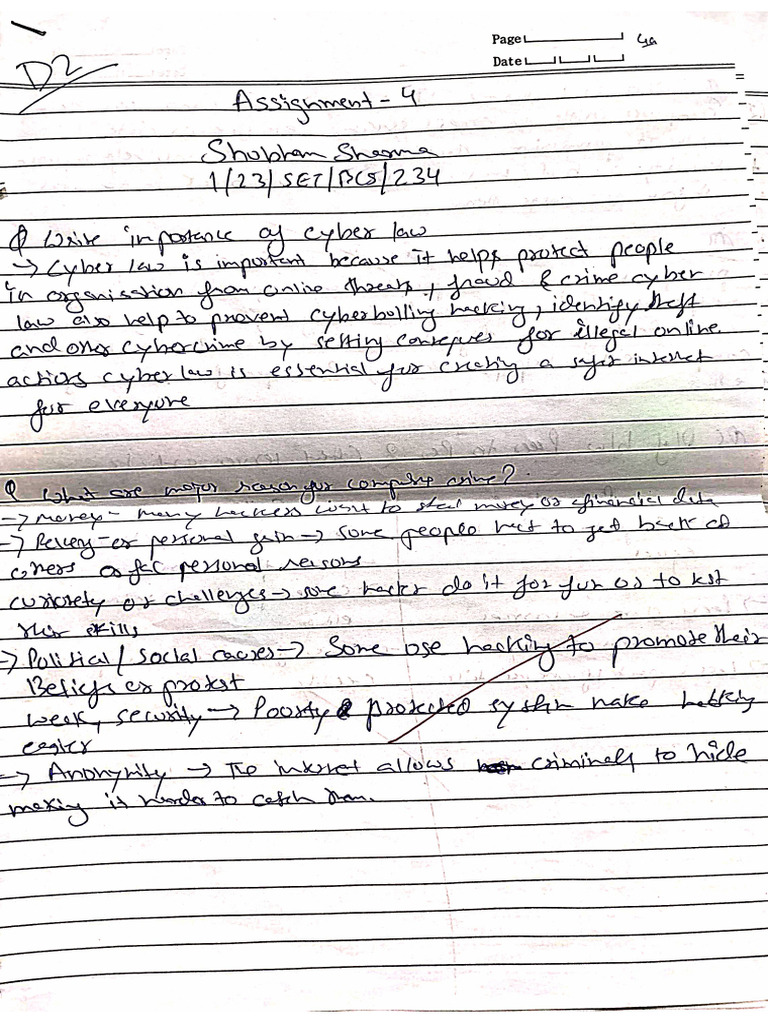 Page 4a
Date
D2
Assignment - 4
Shubham Sharma
1/23/SET/BCS/234
Q Write importance of cyber law
→ Cyber law is important because it helps protect people
in organisation from online threats, fraud & crime cyber
law also help to prevent cyberbulling hacking, identify theft
and other cybercrime by setting for illegal online
actions cyber law is essential for creating a safer internet
for everyone
Q What are major reason for computer crime?
→ Money - many hackers want to steal money or financial data
→ or personal gain → some people to get back at
others or for personal reasons
curiosety or challenges → some hacker do it for fun or to test
their skills
→ Political / social causes → Some use hacking to promote their
Beliefs or protest
weak, security → Poorty protected system make hacking
easier
→ Anonymity → The internet allows criminals to hide
making it harder to catch them.